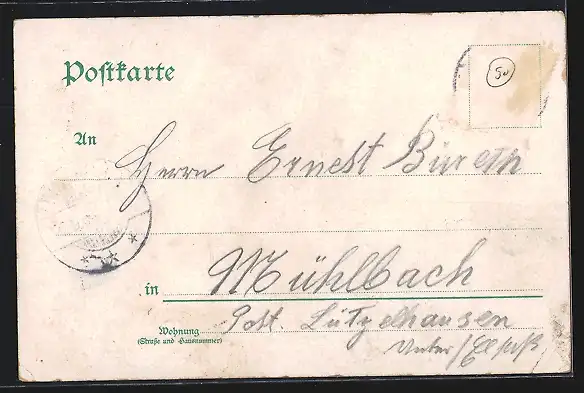 Postkarte
50
An
Herrn Ernest Büreth
in Mühlbach
Wohnung Post. Lützelhausen
(Straße und Hausnummer)
Unter/Elsaß